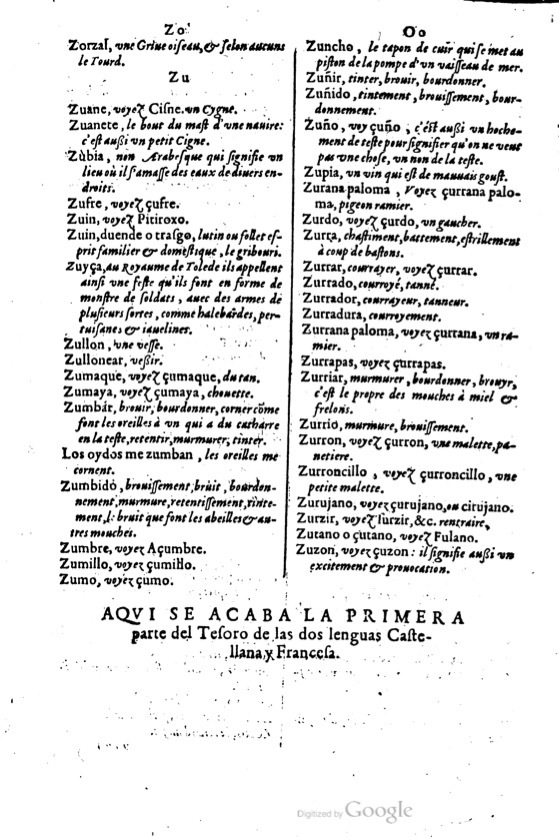 Zo
Zorzal, vne Griue oiseau, & selon aucuns
le Tourd.
Zu
Zuane, voyez Cisne. vn Cygne.
Zuanete, le bout du mast d'vne nauire:
c'est außi vn petit Cigne.
Zùbia, non Arabesque qui signifie vn
lieu où il s'amasse des eaux de diuers en-
droits.
Zufre, voyez çufre.
Zuin, voyez Pitiroxo.
Zuin, duende o trasgo, lutin ou follet es-
prit familier & domestique, le gribouri.
Zuyça, au Royaume de Tolede ils appellent
ainsi vne feste qu'ils font en forme de
monstre de soldats, auec des armes de
plusieurs sortes, comme halebardes, per-
tuisanes & iauelines.
Zullon, vne vesse.
Zullonear, veßir.
Zumaque, voyez çumaque, du tan.
Zumaya, voyez çumaya, chouette.
Zumbar, brouir, bourdonner, corner cõme
font les oreilles à vn qui a du catharre
en la teste, retentir, murmurer, tinter.
Los oydos me zumban, les oreilles me
cornent.
Zumbido, brouissement, bruit, bourdon-
nement, murmure, retentissement, tinte-
ment, le bruit que font les abeilles & au-
tres mouches.
Zumbre, voyez Açumbre.
Zumillo, voyez çumillo.
Zumo, voyez çumo.
Oo
Zuncho, le tapon de cuir qui se met au
piston de la pompe d'vn vaisseau de mer.
Zuñir, tinter, brouir, bourdonner.
Zuñido, tintement, brouissement, bour-
donnement.
Zuño, voy çuño, c'est außi vn hoche-
ment de teste pour signifier qu'on ne veut
pas vne chose, vn non de la teste.
Zupia, vn vin qui est de mauuais goust.
Zurana paloma, Voyez çurrana palo-
ma, pigeon ramier.
Zurdo, voyez çurdo, vn gaucher.
Zurra, chastiment, battement, estrillement
à coup de bastons.
Zurrar, courayer, voyez çurrar.
Zurrado, courroyé, tanné.
Zurrador, courrayeur, tanneur.
Zurradura, courroyement.
Zurrana paloma, voyez çurrana, vn ra-
mier.
Zurrapas, voyez çurrapas.
Zurriar, murmurer, bourdonner, brouyr,
c'est le propre des mouches à miel &
frelons.
Zurrio, murmure, brouissement.
Zurron, voyez çurron, vne malette, pa-
netiere.
Zurroncillo, voyez çurroncillo, vne
petite malette.
Zurujano, voyez çurujano, ou cirujano.
Zurzir, voyez surzir, &c. rentraire,
Zutano o çutano, voyez Fulano.
Zuzon, voyez çuzon: il signifie außi vn
excitement & prouocation.
AQVI SE ACABA LA PRIMERA
parte del Tesoro de las dos lenguas Caste-
llana y Francesa.
Digitized by Google